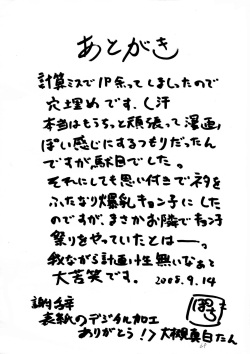 あとがき
計算ミスで1P余ってしまったので
穴埋めです、(汗
本当はもうちっと頑張って漫画
ぽい感じにするつもりだったん
ですが駄目でした。
それにしても思い付きでネタを
ふたなり爆乳キョン子にした
のですが、まさかお隣でキョン子
祭りをやっていたとはー。
我ながら計画性無いなぁと
大苦笑です。 2008.9.14
謝辞
表紙のデジタル加工
ありがとう!>大槻真白たん